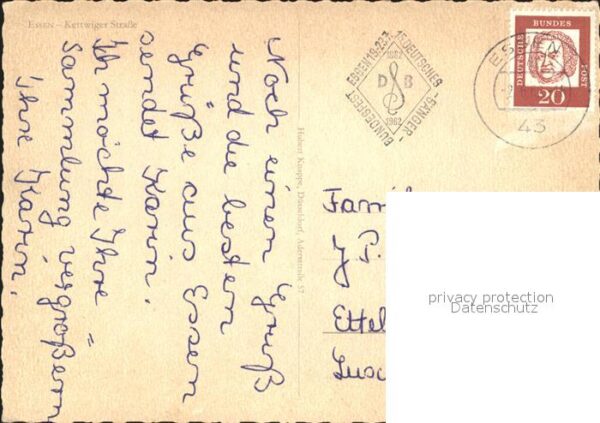 ESSEN – Kettwiger Straße
Noch einen Gruß
und die besten
Grüße aus Essen
sendet Karin.
Ich möchte Ihre
Sammlung vergrößern
Ihre Karin.
Hubert Knappe, Düsseldorf, Adersstraße 57
15. DEUTSCHES
SÄNGER-
BUNDESFEST
ESSEN 19.-23.7.
1862
D B
1962
ESSEN
43
DEUTSCHE
BUNDES
POST
20
Famil
J. P.
Ettel
Lux
privacy protection
Datenschutz